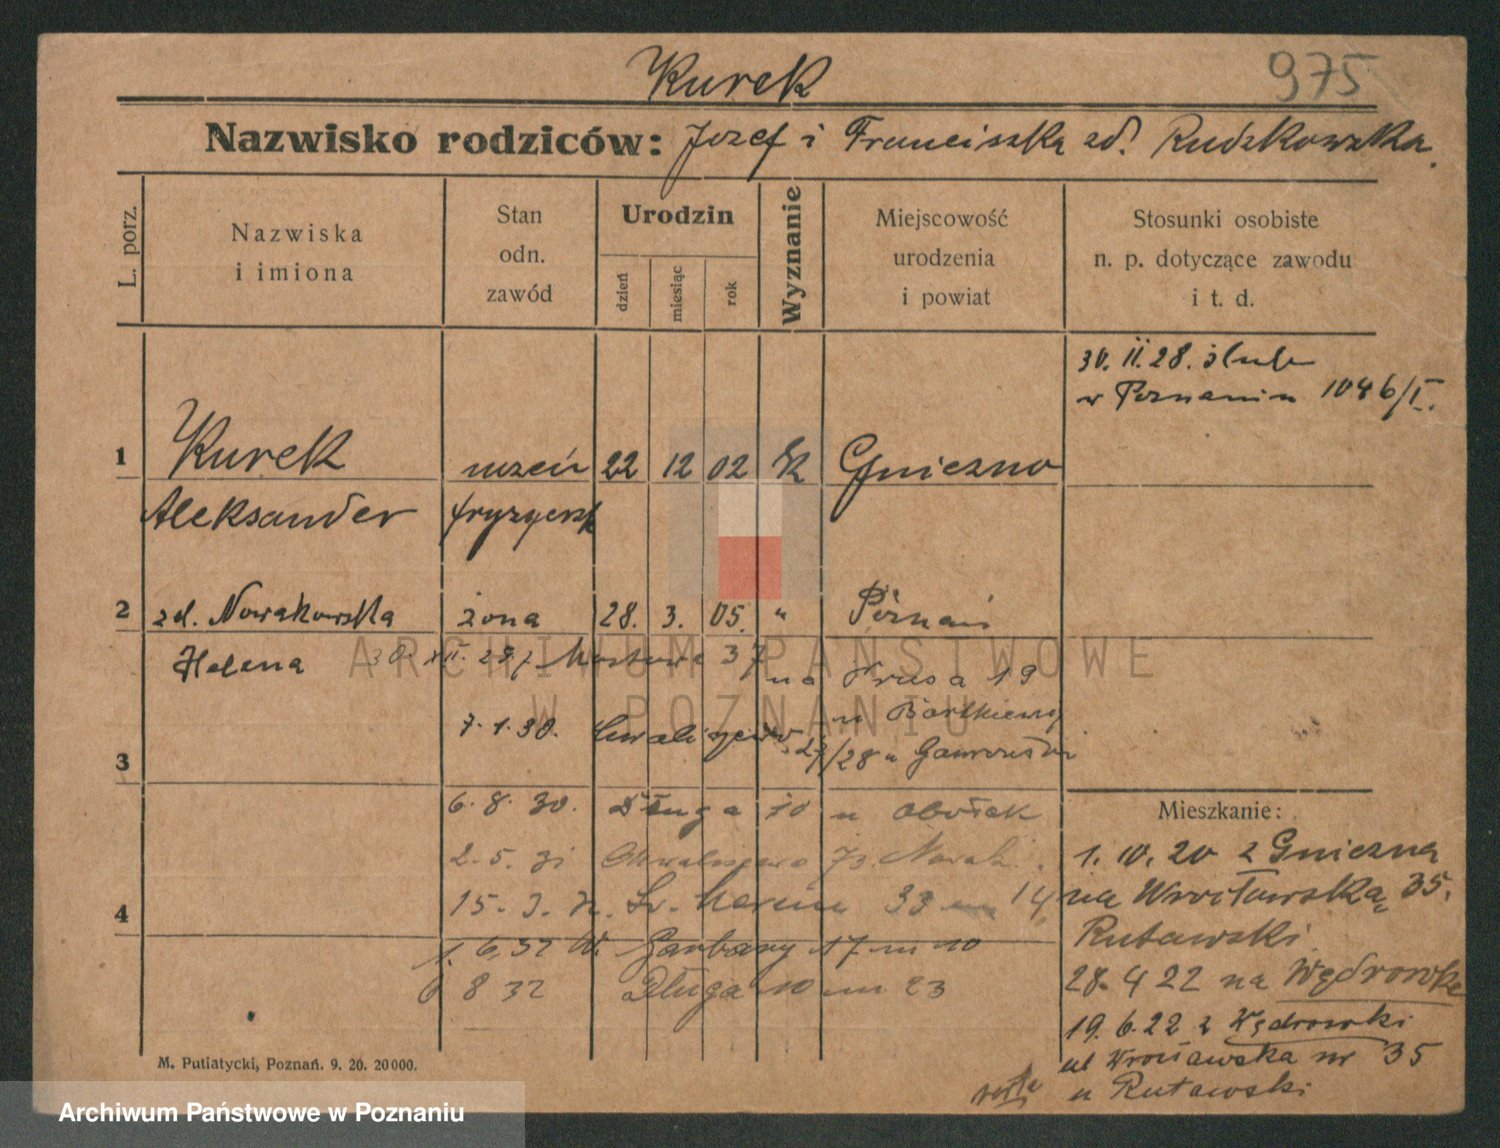 Kurek
975
Nazwisko rodziców: Jozef i Franciszka zd. Rudzkowska.
L. porz.
Nazwiska
i imiona
Stan
odn.
zawód
Urodzin
dzień
miesiąc
rok
Wyznanie
Miejscowość
urodzenia
i powiat
Stosunki osobiste
n. p. dotyczące zawodu
i t. d.
30. II. 28. ślub
w Poznaniu 1046/I.
1 Kurek uczeń 22 12 02 Gniezno
Aleksander fryzjersk
2 zd. Nowakowska żona 28. 3. 05. " Poznań
Helena 30. XII. 29. Mostowa 37 na Prusa 19
u
7.1.30. 27/28 u
3
6. 8. 30. Długa 10 u
Mieszkanie:
2. 5. 31 Chwaliszewo 73
1. 10. 20 z Gniezna
15. 3. Św. Marcin 33 14
na Wrocławską 35.
4
Rutawski
1. 6. 32 Garbary 17 m 10
28. 4 22 na Wędrówkę
8 32 Długa 10 m 23
19. 6. 22 z Wędrówki
ul Wrocławska nr 35
u Rutawski
M. Putiatycki, Poznań. 9. 20. 20000.
ARCHIWUM PAŃSTWOWE
W POZNANIU
Archiwum Państwowe w Poznaniu